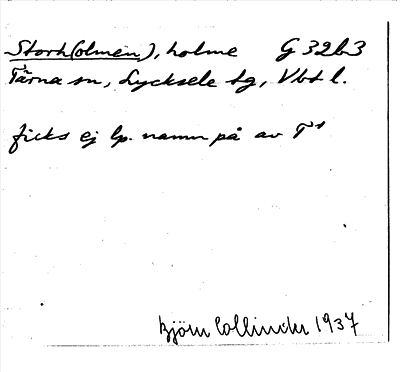 Storh(olmen), holme G 32b3
Tärna sn, Lycksele lg, Vbt l.
ficks ej lp. namn på av T¹
Björn Collinder 1937